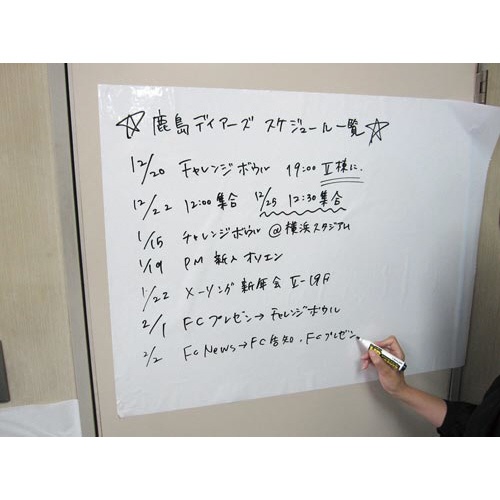 ☆鹿島ディアーズ スケジュール一覧☆
12/20 チャレンジボウル 19:00 Ⅱ様に.
12/22 12:00集合 12/25 12:30集合
1/15 チャレンジボウル @横浜スタジアム
1/19 PM 新人オリエン
1/22 メーリング新年会
2/1 FCプレゼン→チャレンジボウル
2/2 FC News→FC告知・FCプレゼン